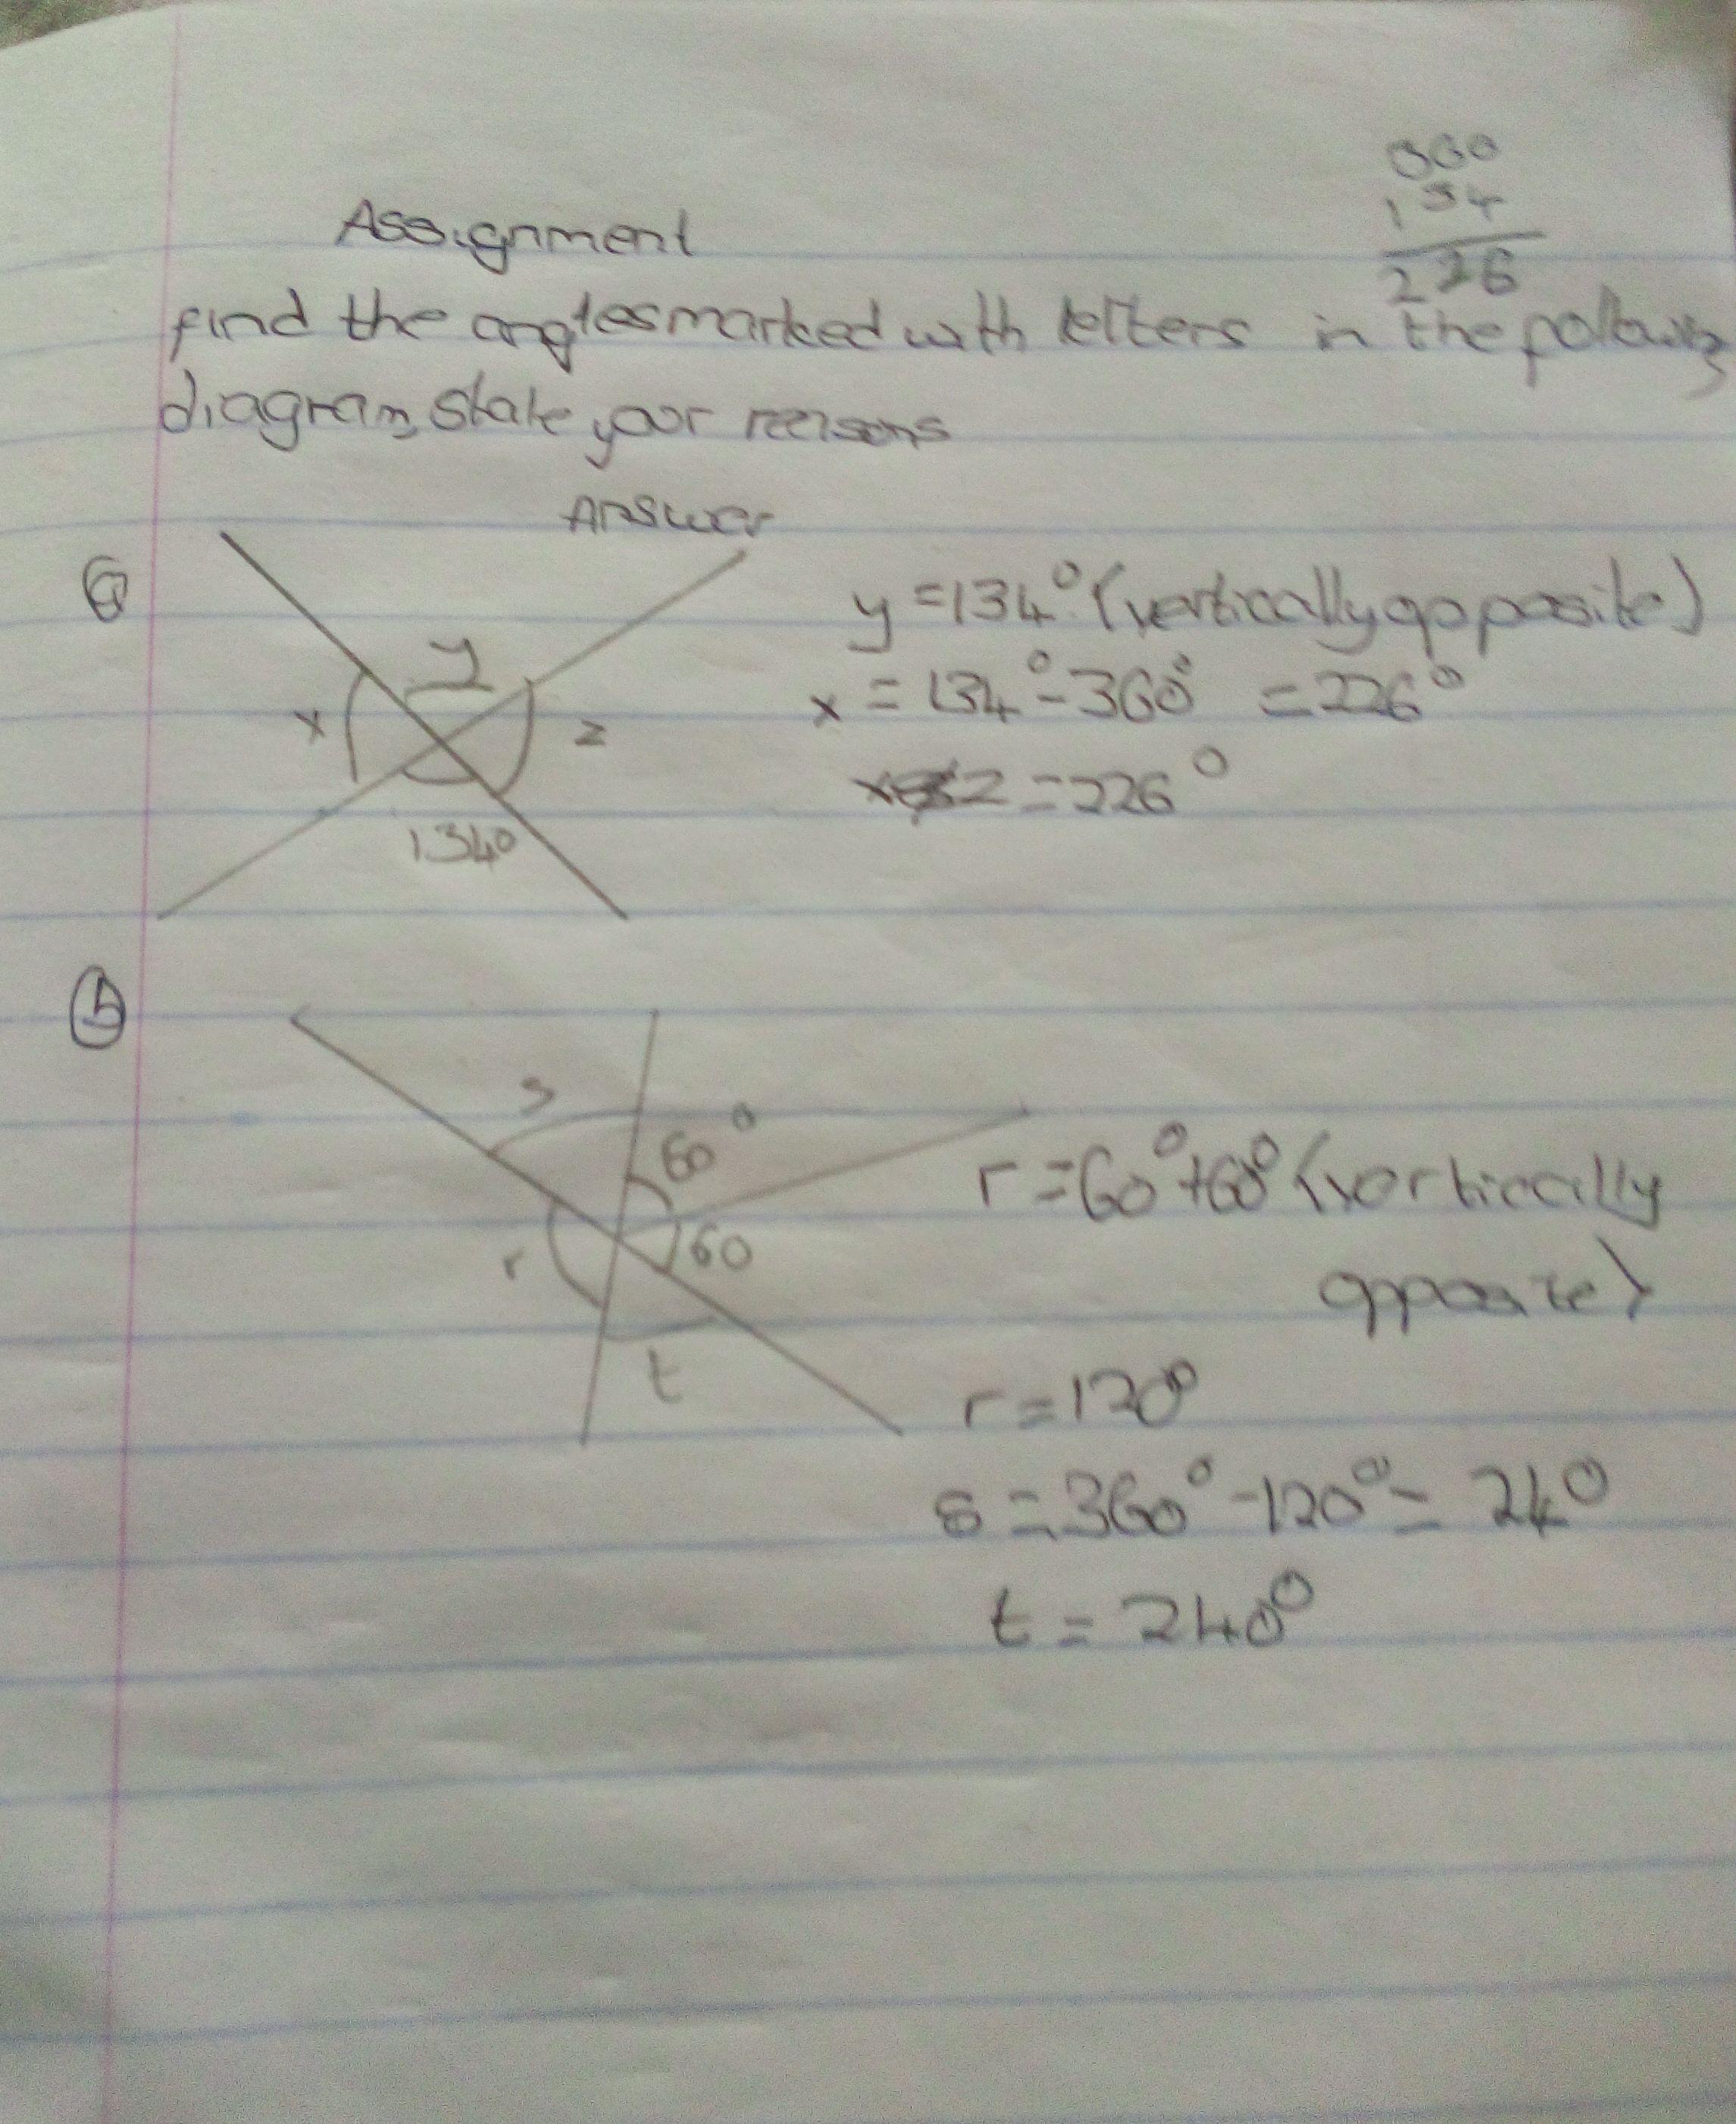 360
134
226
Assignment
find the angles marked with letters in the following
diagram, state your reasons
Answer
a
y = 134° (vertically opposite)
y
x = 134° - 360° = 226°
x
z
z = 226°
134°
b
s
60°
r = 60° + 60° (vertically
r
60
opposite)
t
r = 120°
s = 360° - 120° = 240
t = 240°